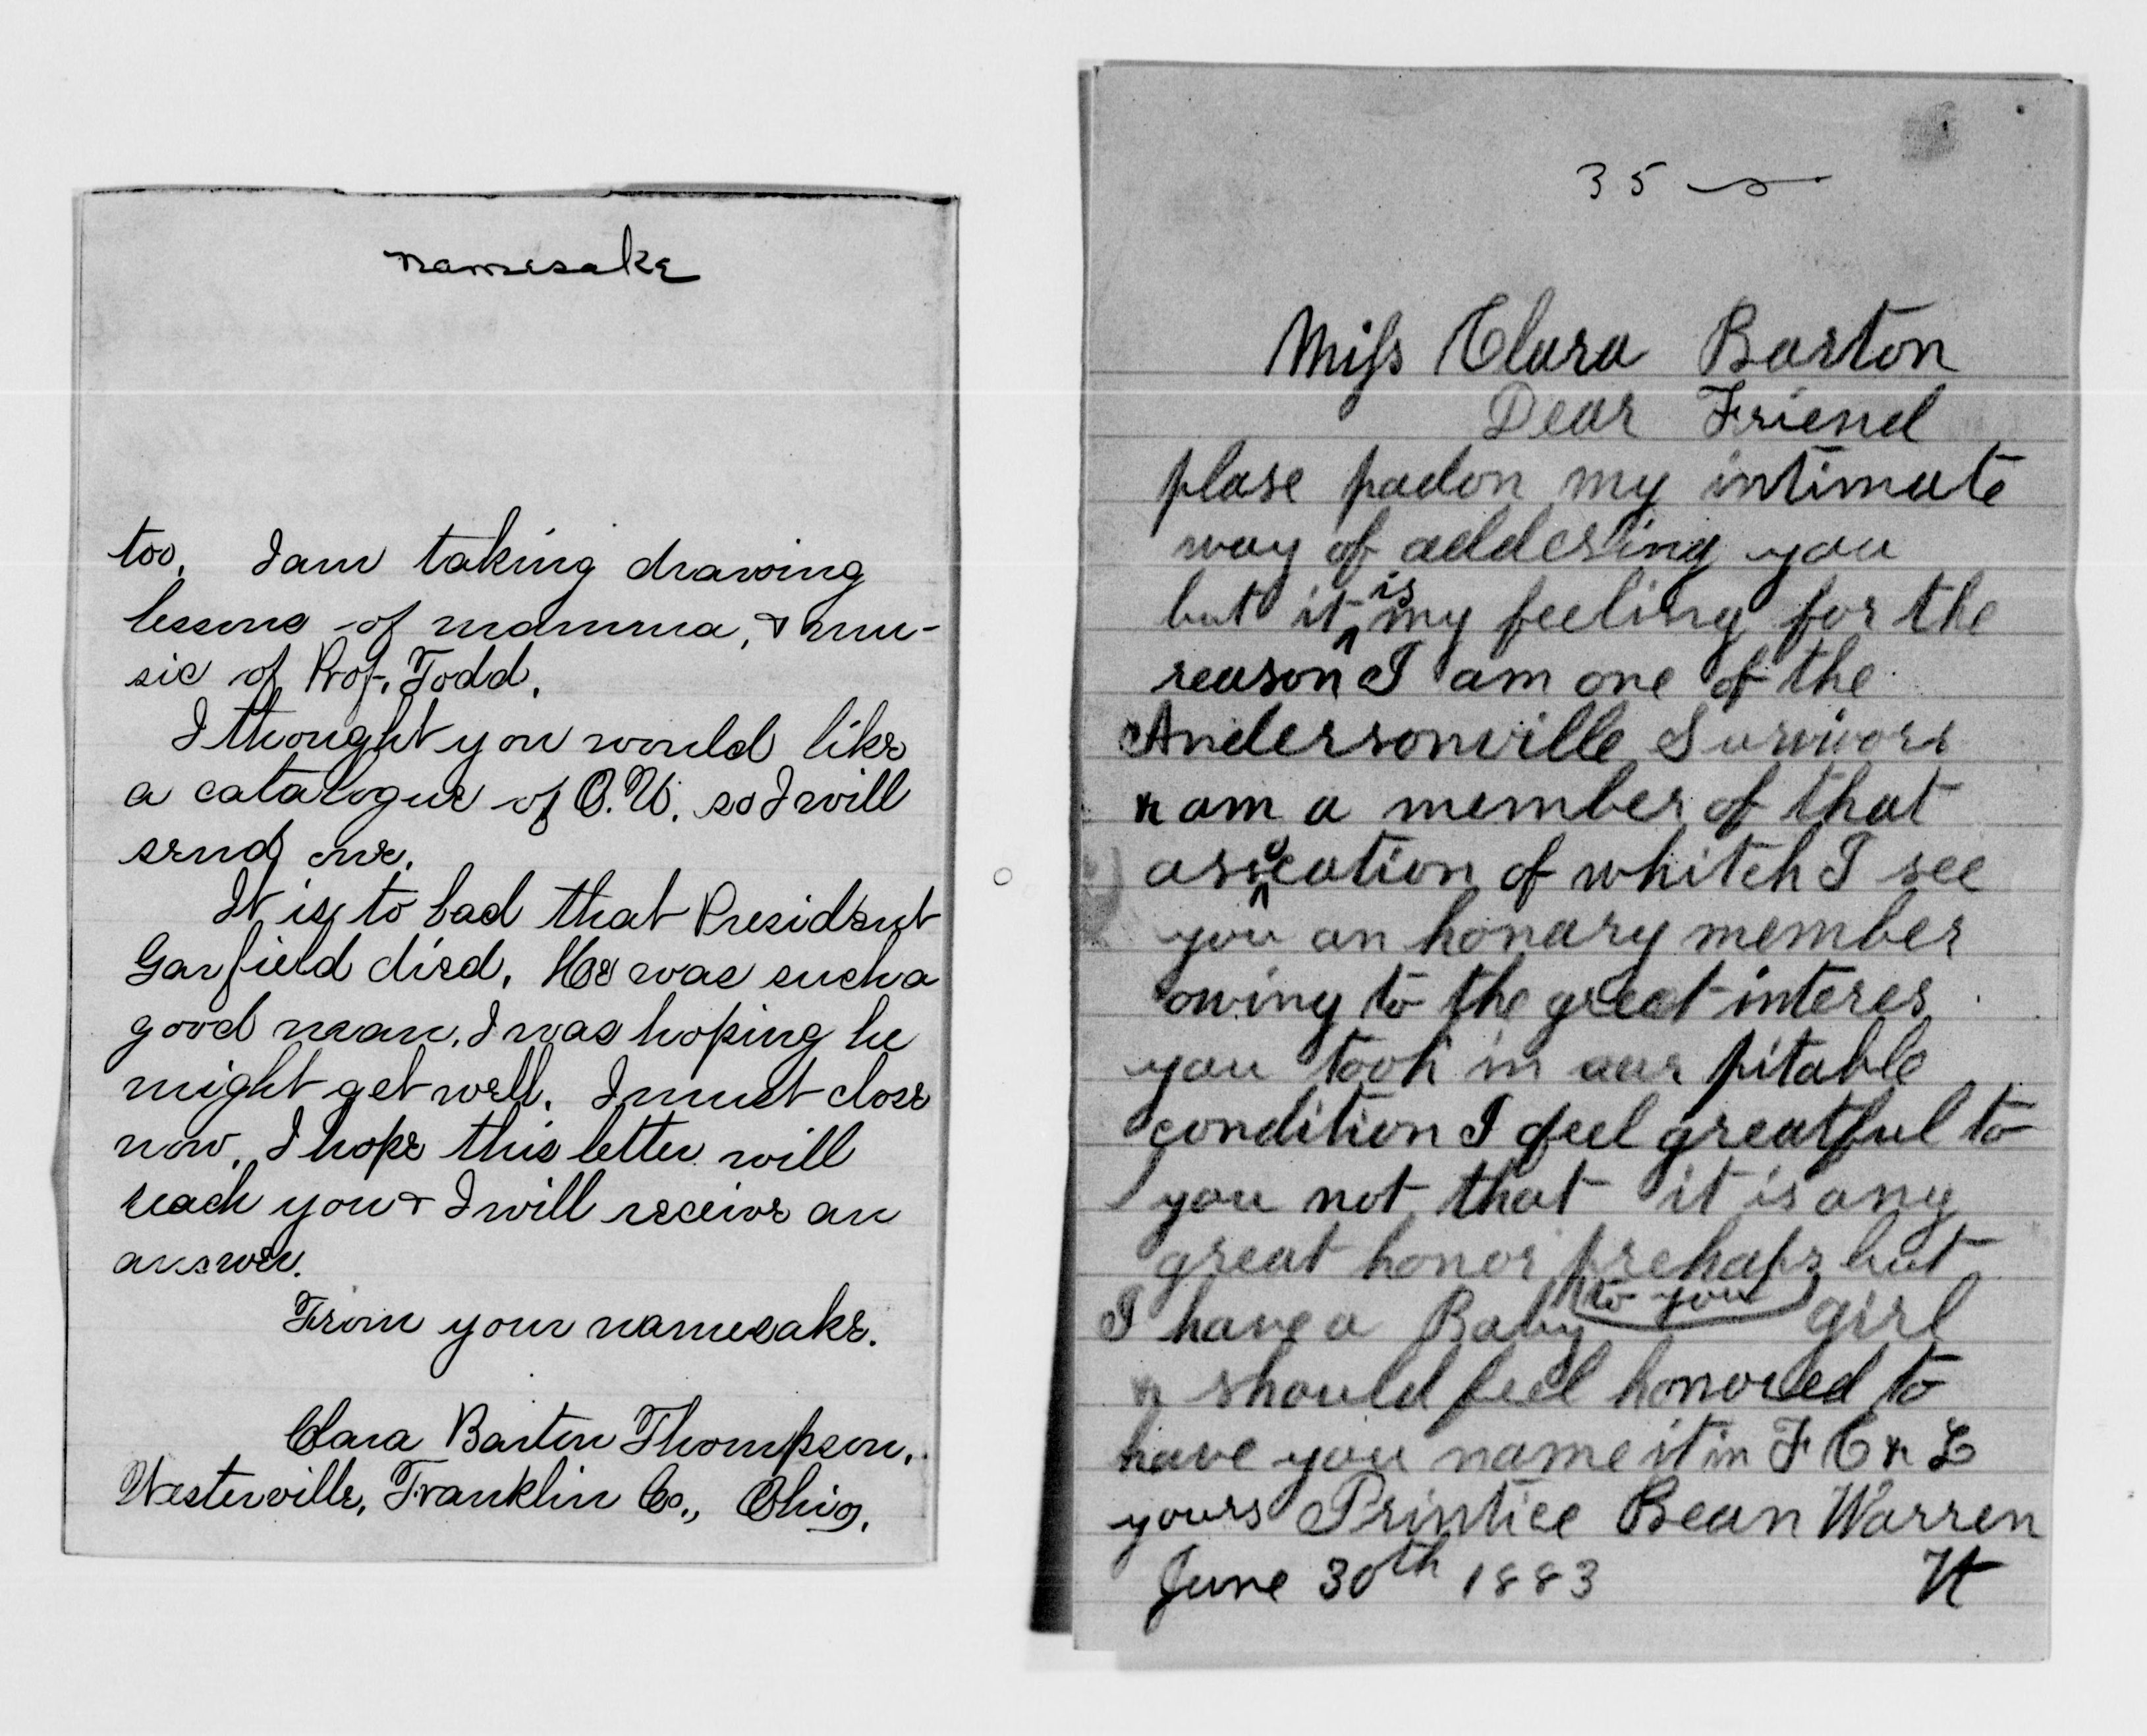 namesake
too. I am taking drawing
lessons of mamma, & mu-
sic of Prof. Todd.
I thought you would like
a catalogue of O.U. so I will
send one.
It is to bad that President
Garfield died. He was such a
good man. I was hoping he
might get well. I must close
now. I hope this letter will
reach you & I will receive an
answer.
From your namesake.
Clara Barton Thompson.
Westerville, Franklin Co., Ohio.
35
Miss Clara Barton
Dear Friend
plase padon my intimate
way of addersing you
but it is my feeling for the
reason I am one of the
Andersonville Survivors
& am a member of that
asocation of whitch I see
you an honary member
owing to the greet interes
you took in our pitable
condition I feel greatful to
you not that it is any
great honor prehaps but
to you
I have a Baby girl
& should feel honored to
have you name it in F C & L
yours Printice Bean Warren
June 30th 1883 Vt